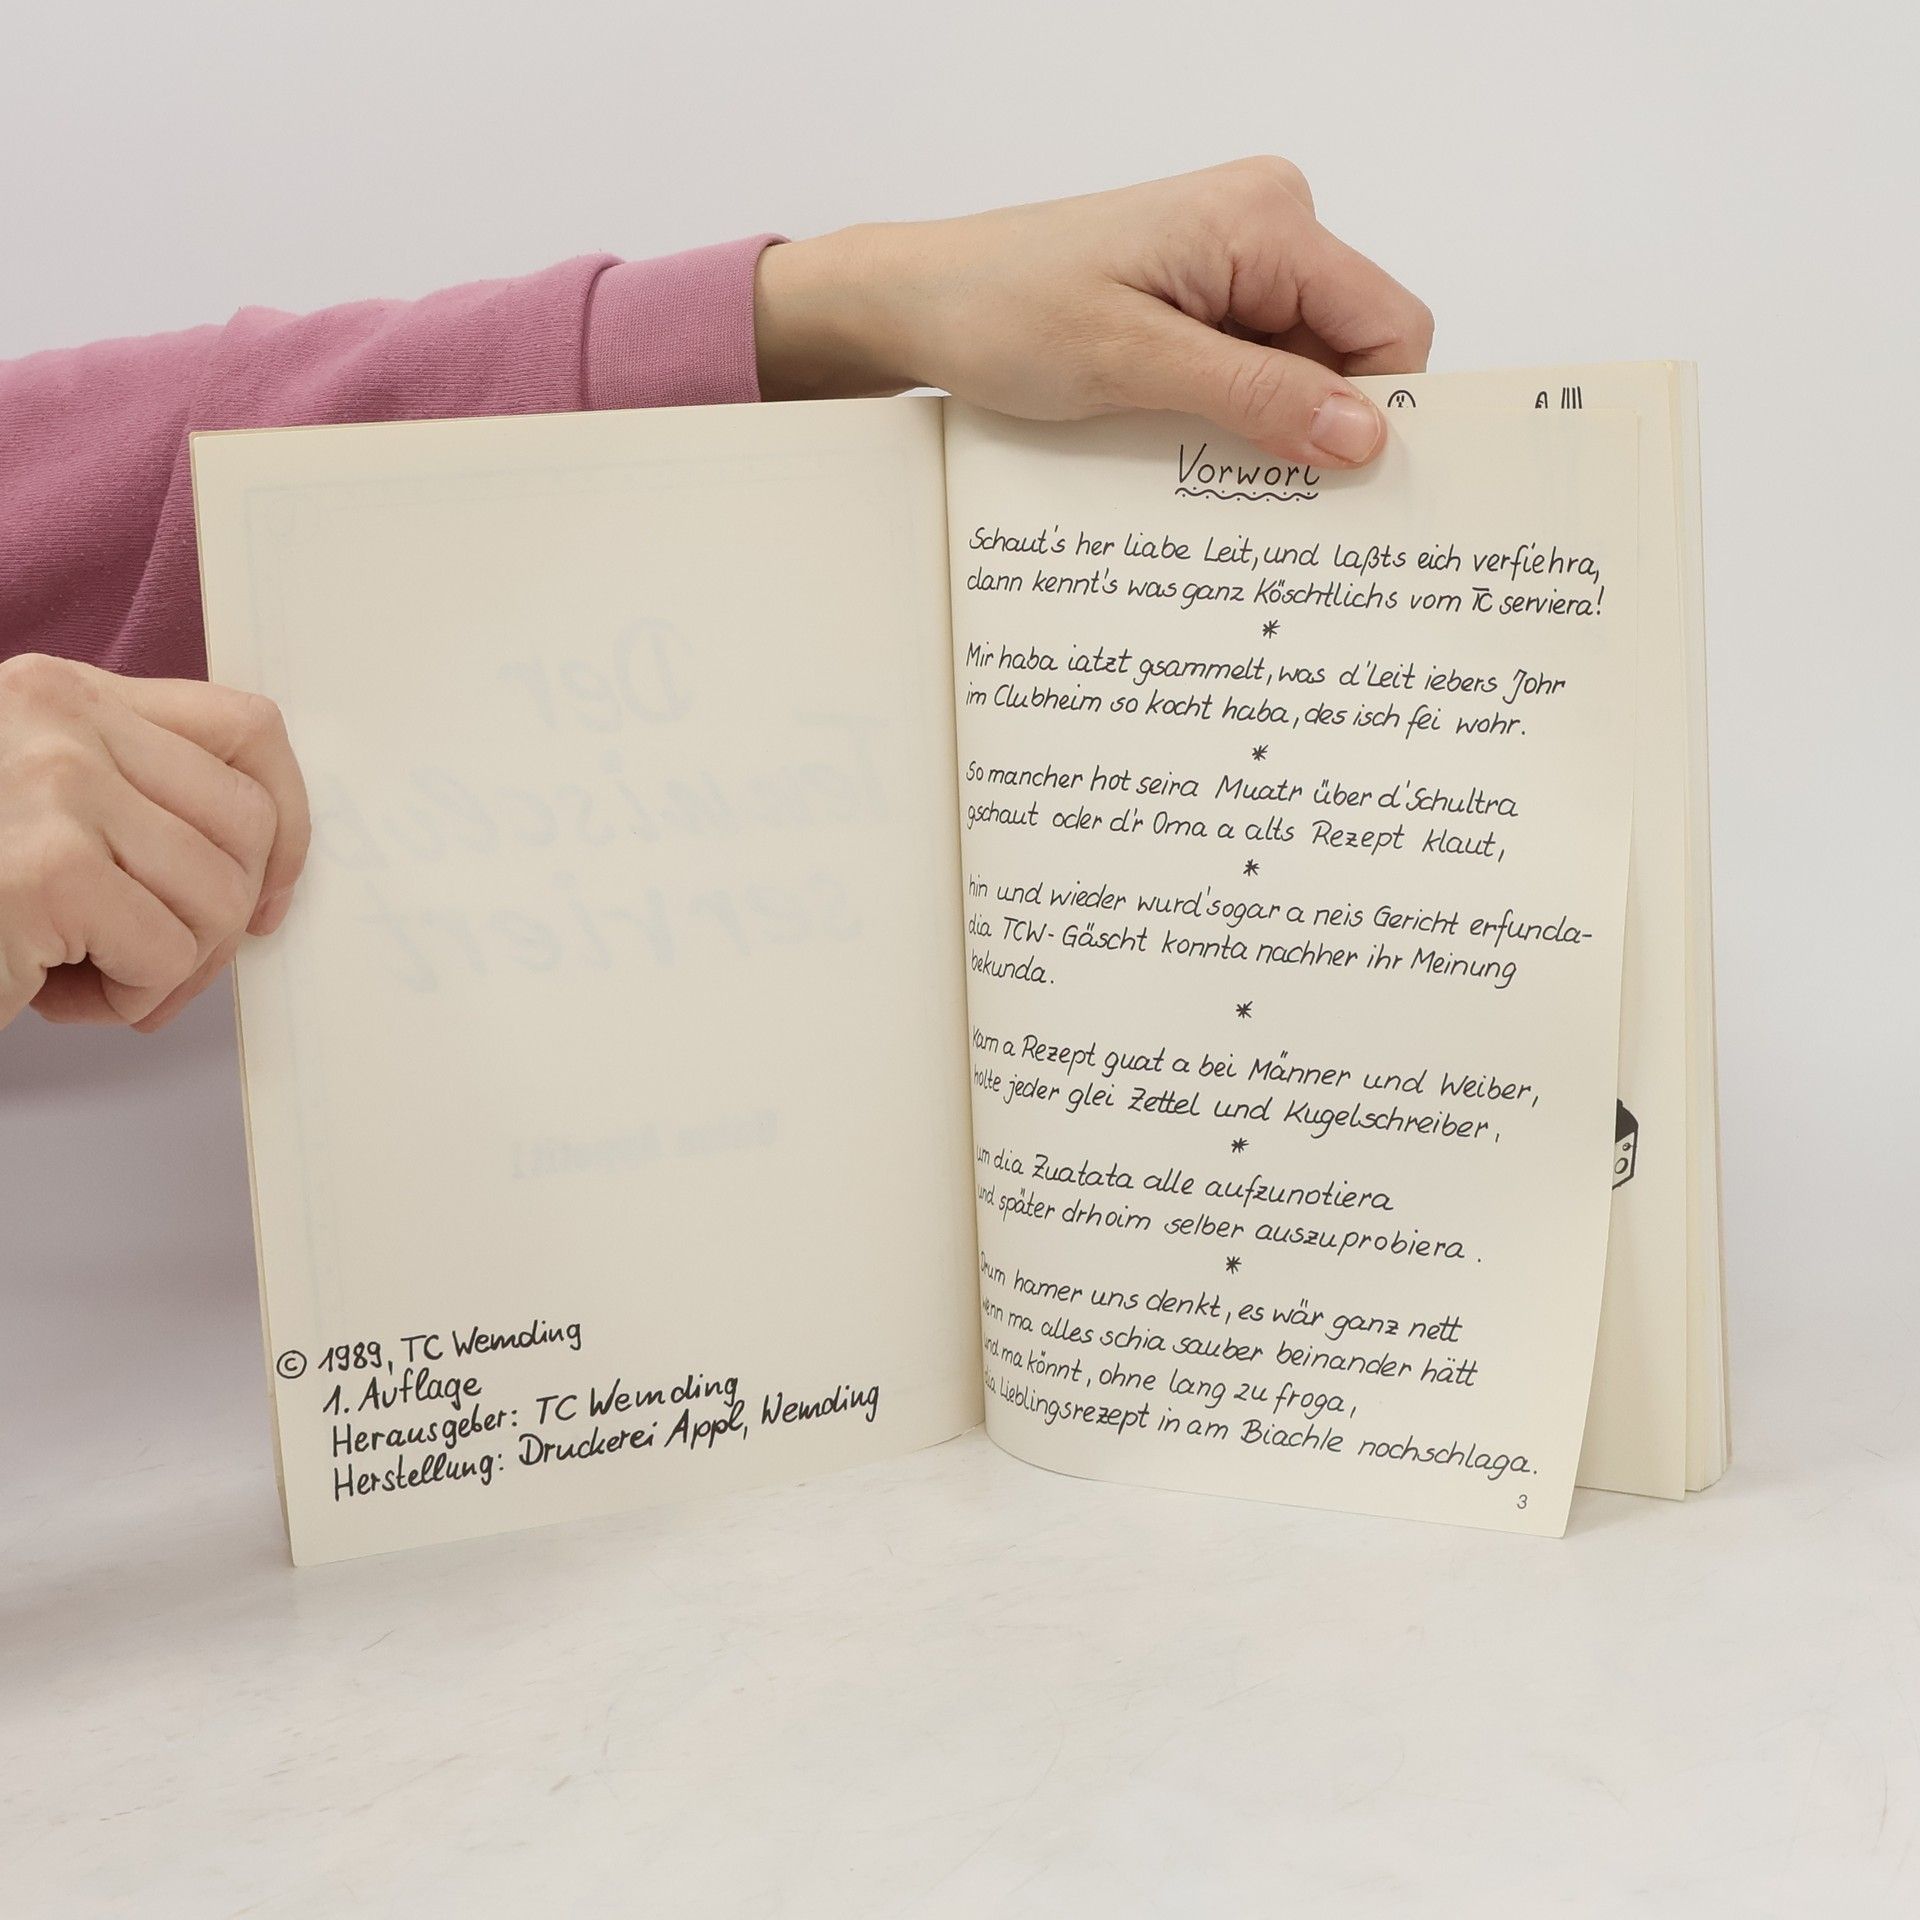 © 1989, TC Wemding
1. Auflage
Herausgeber: TC Wemding
Herstellung: Druckerei Appl, Wemding
Vorwort
Schaut's her liabe Leit, und laßts eich verfiehra,
dann kennt's was ganz Köschtlichs vom TC serviera!
*
Mir haba iatzt gsammelt, was d'Leit iebers Johr
im Clubheim so kocht haba, des isch fei wohr.
*
So mancher hot seira Muatr über d'Schultra
gschaut oder d'r Oma a alts Rezept klaut,
*
hin und wieder wurd' sogar a neis Gericht erfunda-
dia TCW-Gäscht konnta nachher ihr Meinung
bekunda.
*
Kam a Rezept guat a bei Männer und Weiber,
holte jeder glei Zettel und Kugelschreiber,
*
um dia Zuatata alle aufzunotiera
und später drhoim selber auszuprobiera.
*
Drum hamer uns denkt, es wär ganz nett
wenn ma alles schia sauber beinander hätt
und ma könnt, ohne lang zu froga,
dia Lieblingsrezept in am Biachle nochschlaga.
3